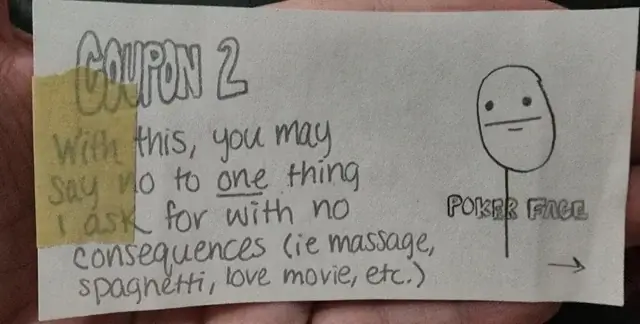 COUPON 2
With this, you may
say no to one thing
I ask for with no
consequences (ie massage,
spaghetti, love movie, etc.)
POKER FACE